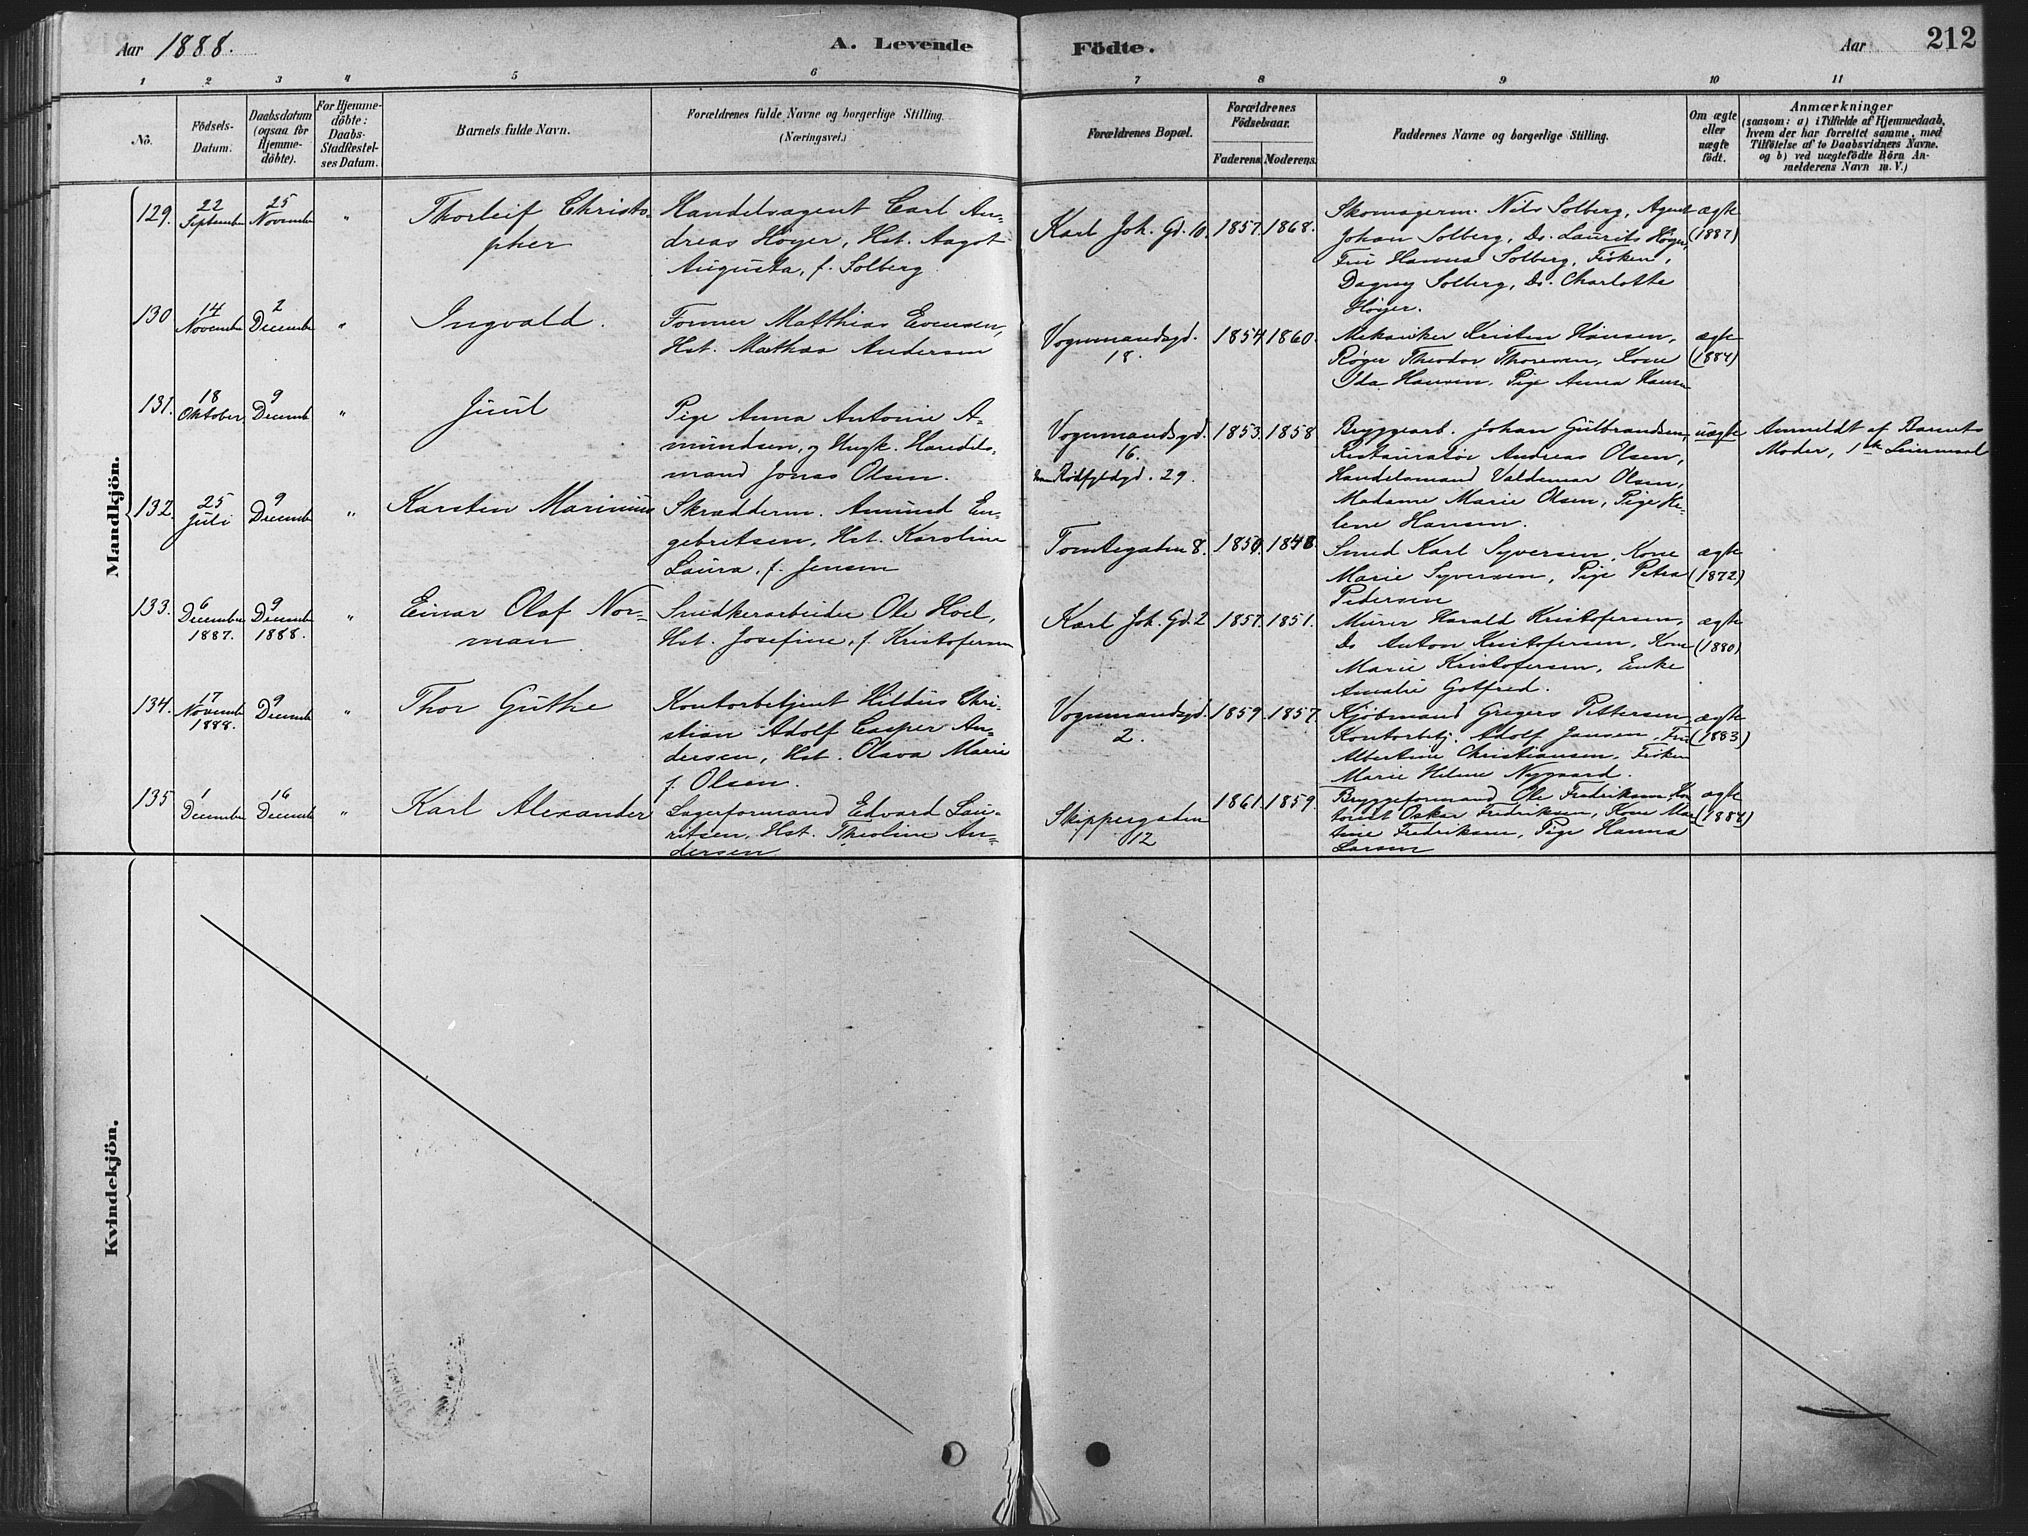 Aar 1888.
A. Levende Födte.
Aar
212
1 2 3 4 5 6 7 8 9 10 11
No.
Födsels-Datum.
Daabsdatum (ogsaa for Hjemme-döbte).
For Hjemme-döbte: Daabs-Stadfæstel-ses Datum.
Barnets fulde Navn.
Forældrenes fulde Navne og borgerlige Stilling. (Næringsvei.)
Forældrenes Bopæl.
Forældrenes Födselsaar.
Faderens. Moderens.
Faddernes Navne og borgerlige Stilling.
Om ægte eller uægte födt.
Anmærkninger
(saasom: a) i Tilfælde af Hjemmedaab,
hvem der har forrettet samme, med
Tilföielse af to Daabsvidners Navne.
og b) ved uægtefödte Börn An-
melderens Navn m. V.)
Mandkjön.
129. 22 September 25 November "
Thorleif Christo-
pher
Handelsagent Carl An-
dreas Höyer, Hst. Aagot
Augusta, f. Solberg.
Karl Joh. Gd. 10. 1857. 1868.
Skomagerm. Nils Solberg, Agent
Johan Solberg, Do. Laurits Höyer,
Fru Hanna Solberg, Fröken
Dagny Solberg, Do. Charlotte
Höyer.
ægte (1887)
130 14 November 2 December "
Ingvald.
Former Matthias Evensen,
Hst. Mathea Andersen
Vognmandsgd. 18. 1854 1860.
Mekaniker Kristen Hansen,
Theodor Thoresen, Kone
Ida Hansen, Pige Anna Hansen
ægte (1884)
131. 18 Oktober 9 Decemb "
Juul
Pige Anna Antonie A-
mundsen, og Ungk. Handels-
mand Jonas Olsen.
Vognmandsgd. 16.
Rödfyldgd. 29.
1853. 1858
Bryggearb. Johan Gulbrandsen,
Restauratör Andreas Olsen,
Handelsmand Valdemar Olsen,
Madame Marie Olsen, Pige He-
lene Hansen.
uægte
Anmeldt af Barnets
Moder, 1ste Leiermaal
132. 25 Juli 9 Decemb "
Karsten Marinius
Skrædderm. Amund En-
gebretsen, Hst. Karoline
Laura, f. Jensen
Tomtegaden 8. 1850. 1848.
Smed Karl Syversen, Kone
Marie Syversen, Pige Petra
Pedersen
ægte (1872)
133. 6 December 1887. 9 December 1888. "
Einar Olaf Nor-
man
Snedkerarbeider Ole Hoel,
Hst. Josefine, f. Kristofersen
Karl Joh. Gd. 2 1857. 1851.
Murer Harald Kristofersen,
Do Anton Kristofersen, Kone
Marie Kristofersen, Enke
Amalie Gotfred.
ægte (1880)
134. 17 November 1888. 9 Decemb "
Thor Guthe
Kontorbetjent Hildus Chri-
stian Adolf Casper An-
dersen, Hst. Olava Marie
f. Olsen.
Vognmandsgd. 2. 1859. 1857.
Kjöbmand Gregers Pettersen,
Kontorbetj. Adolf Jansen, Fru
Albertine Christiansen, Fröken
Marie Helene Nygaard.
ægte (1883)
135 1 December 16 Decemb "
Karl Alexander
Lagerformand Edvard Lau-
ritsen, Hst. Theoline An-
dersen
Skippergaden 12 1861. 1859.
Bryggeformand Ole Fredriksen,
Oskar Fredriksen, Kone Mar-
tine Fredriksen, Pige Hanna
Larsen
ægte (1884)
Kvindekjön.